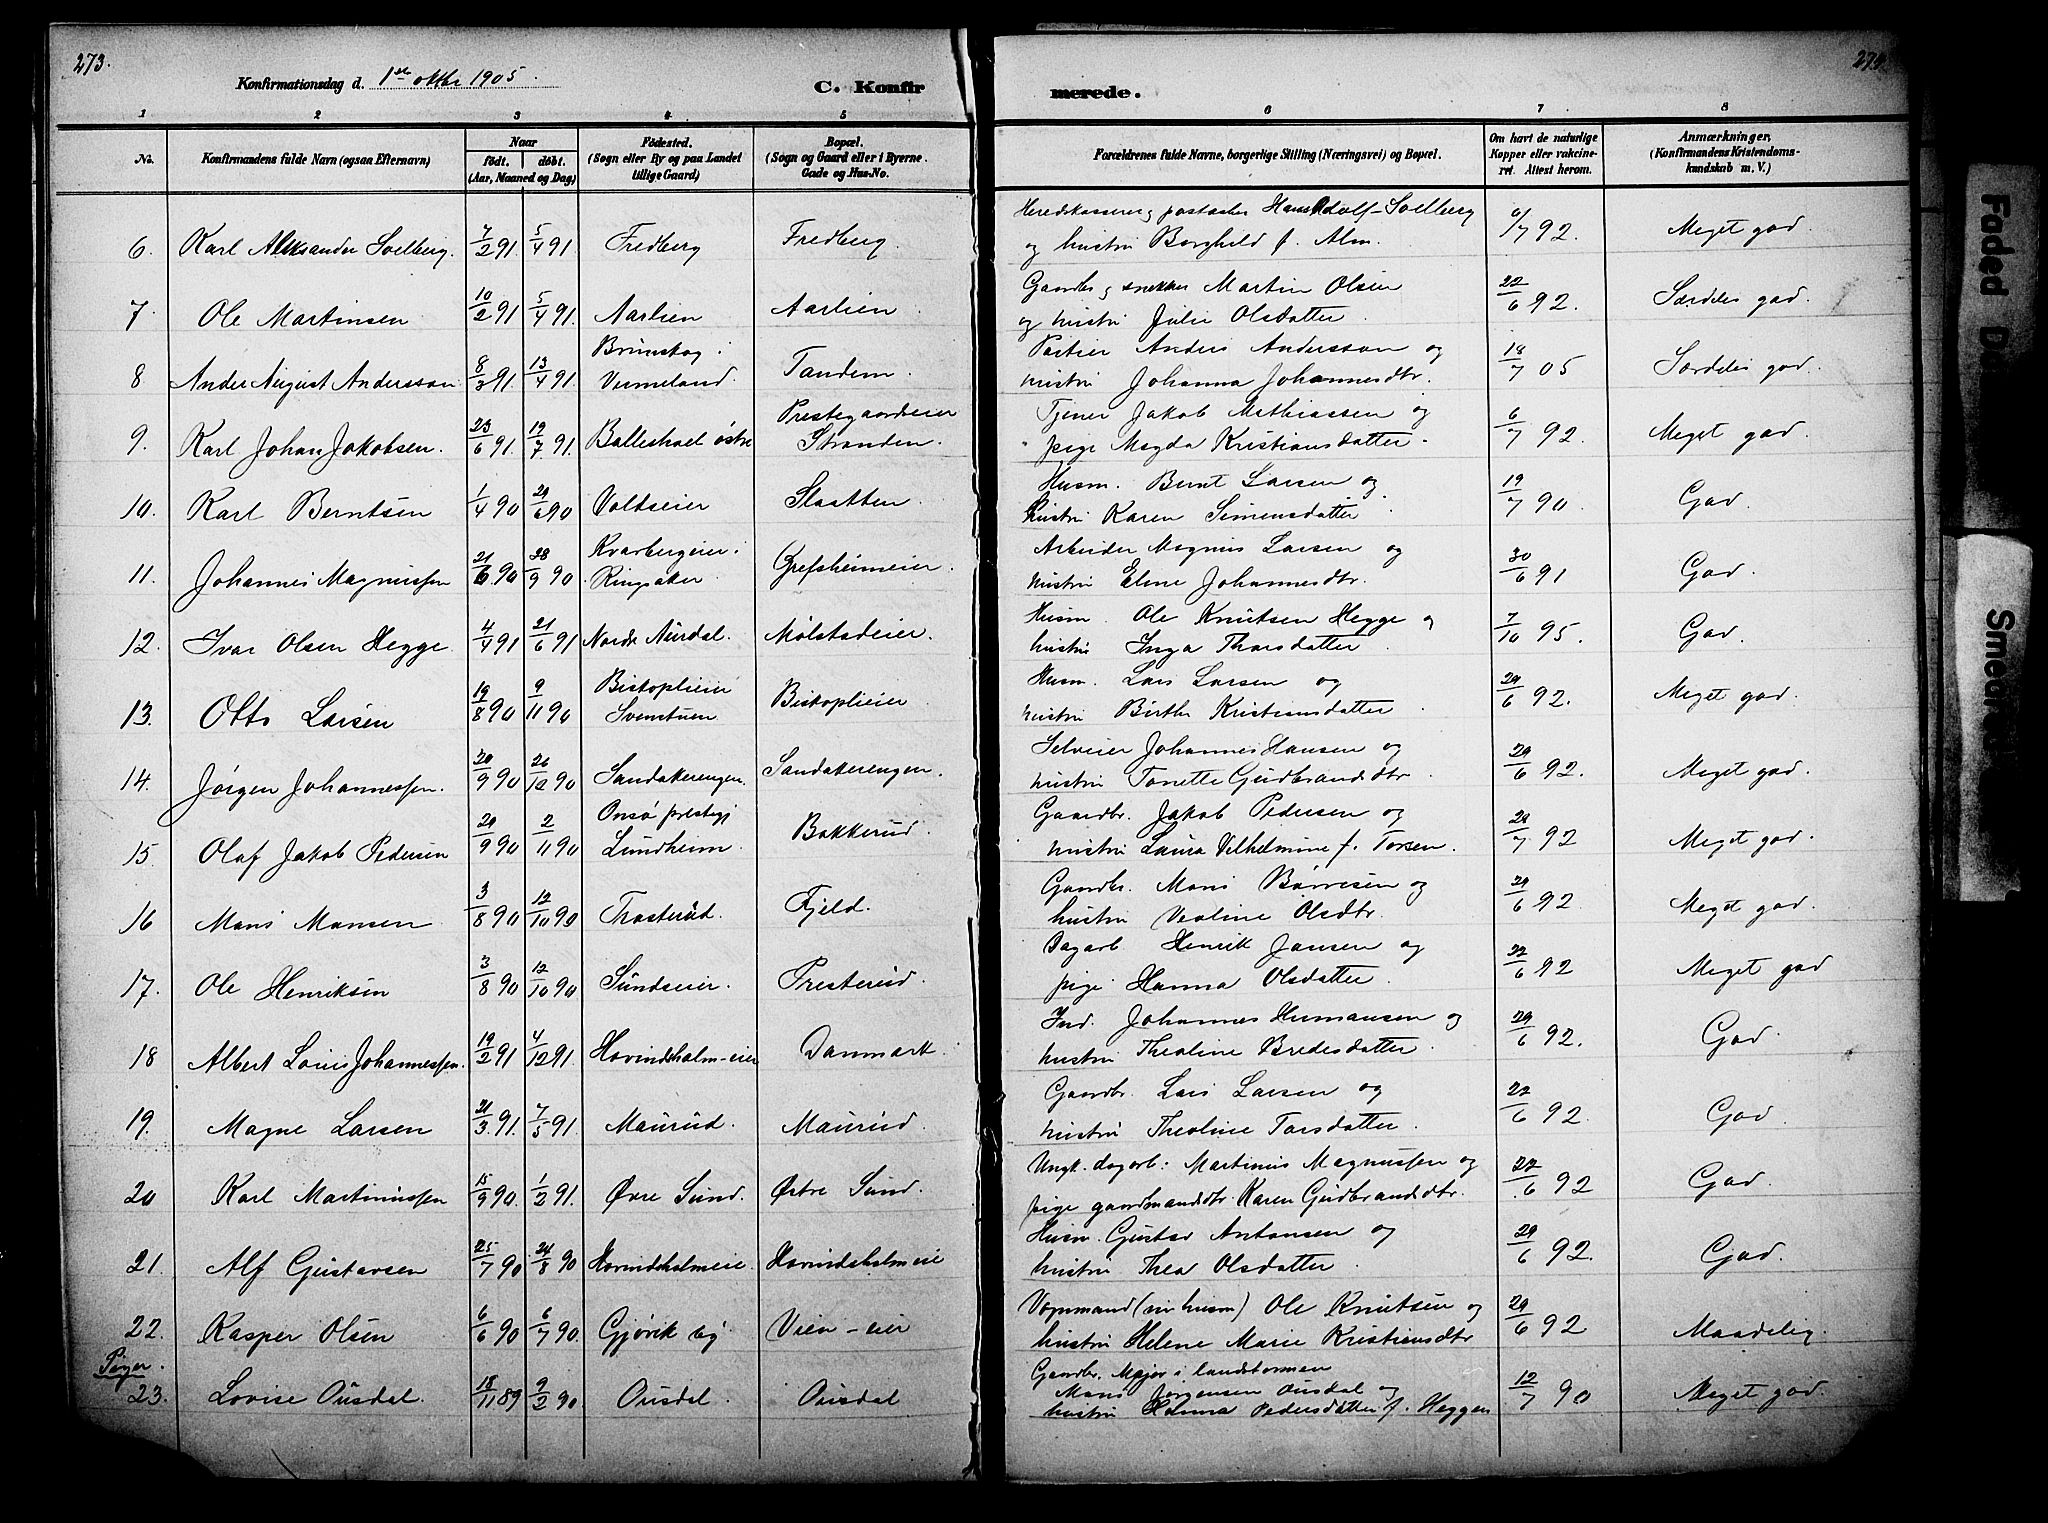 273.
Konfirmationsdag d. 1ste oktbr 1905.
C. Konfir
merede.
1 2 3 4 5 6 7 8
No.
Konfirmandens fulde Navn (ogsaa Efternavn)
Naar
født. døbt.
(Aar, Maaned og Dag)
Fødested.
(Sogn eller By og paa Landet
tillige Gaard)
Bopæl.
(Sogn og Gaard eller i Byerne.
Gade og Hus-No.
Forældrenes fulde Navne, borgerlige Stilling (Næringsvei) og Bopæl.
Om havt de naturlige
Kopper eller vakcine-
ret. Attest herom.
Anmærkninger.
(Konfirmandens Kristendoms-
kundskab m. V.)
6. Karl Aleksander Soelberg. 7/2 91 5/4 91 Fredberg Fredberg. Heredskasserer, Hans Adolf Soelberg
og hustru Borghild f. Alm. 6/7 92. Meget god.
7. Ole Martinsen 10/2 91 5/4 91. Aarlien Aarlien. Gaardbr og snekker Martin Olsen
og hustru Julie Olsdatter. 22/6 92. Særdeles god.
8 Anders August Andersson 8/3 91 13/4 91. Brunskog i
Vermeland. Tandem. Portier Anders Andersson og
hustru Johanna Johannesdtr. 18/7 05 Særdeles god.
9. Karl Johan Jakobsen. 23/6 91. 19/7 91. Balleshoel østre Prestegaardseier
Stranden. Tjener Jakob Mathiassen og
pige Magda Kristiansdatter. 6/7 92. Meget god.
10. Karl Berntsen 1/4 90 29/6 90 Voldseier Slaatten Husm. Bernt Larsen og
hustru Karen Simensdatter. 19/7 90. God.
11. Johannes Magnussen 21/6 90 28/9 90 Kvarbergeier i
Ringsaker. Grefsheimeier. Arbeider Magnus Larsen og
hustru Eline Johannesdtr. 30/6 91 God.
12. Ivar Olsen Hegge. 4/4 91 21/6 91 Nordre Aurdal. Molstadeier. Husm. Ole Knutsen Hegge og
hustru Inga Thorsdatter. 7/10 95. God.
13. Otto Larsen 19/8 90 9/11 90 Bistoplieier
Svenstuen Bistoplieier Husm. Lars Larsen og
hustru Birthe Kristiansdatter. 29/6 92. Meget god.
14. Jørgen Johannessen. 20/9 90 26/12 90 Sandakerengen. Sandakerengen. Selveier Johannes Hansen og
hustru Tonette Gudbrandsdtr. 29/6 92. Meget god.
15. Olaf Jakob Pedersen 29/9 90 2/11 90 Onsø prestegj
Lundheim. Bakkerud. Gaardbr. Jakob Pedersen og
hustru Laura Vilhelmine f. Torsen. 28/7 92 Meget god.
16 Mons Monsen 3/8 90 12/10 90 Trosterud. Fjeld. Gaardbr. Mons Børresen og
hustru Veoline Olsdtr. 29/6 92 Meget god.
17. Ole Henriksen 3/8 90 12/10 90 Sundseier. Presterud. Dagarb. Henrik Jansen og
pige Hanna Olsdatter. 22/6 92 Meget god
18 Albert Louis Johannessen. 19/2 91 4/12 91. Hovindsholm-eier Danmark. Ind. Johannes Hermansen og
hustru Theoline Bredesdatter. 29/6 92. God
19. Magne Larsen 21/3 91. 7/5 91. Maurud. Maurud. Gaardbr. Lars Larsen og
hustru Theoline Torsdatter. 22/6 92. God.
20 Karl Martinussen 15/9 90. 1/2 91. Øvre Sund. Østre Sund. Ungk. dagarb. Martinus Magnussen og
pige gaardmandsdtr. Karen Gudbrandsdtr. 22/6 92 God.
21. Alf Gustavsen 25/7 90 24/8 90 Hovindsholmeie. Hovindsholmeie Husm. Gustav Antonsen og
hustru Thea Olsdatter. 29/6 92. God.
22. Kasper Olsen 6/6 90 6/7 90. Gjøvik by Vien-eier Vognmand (nu husm) Ole Knutsen og
hustru Helene Marie Kristiansdtr 29/6 92 Maadelig.
Piger.
23. Lovise Ousdal. 18/11 89 9/2 90 Ousdal Ousdal Gaardbr. Major i landstormen
Mons Jørgensen Ousdal og
hustru Hanna Pedersdatter f. Heggen 12/7 90 Meget god.
Faded
Smeared